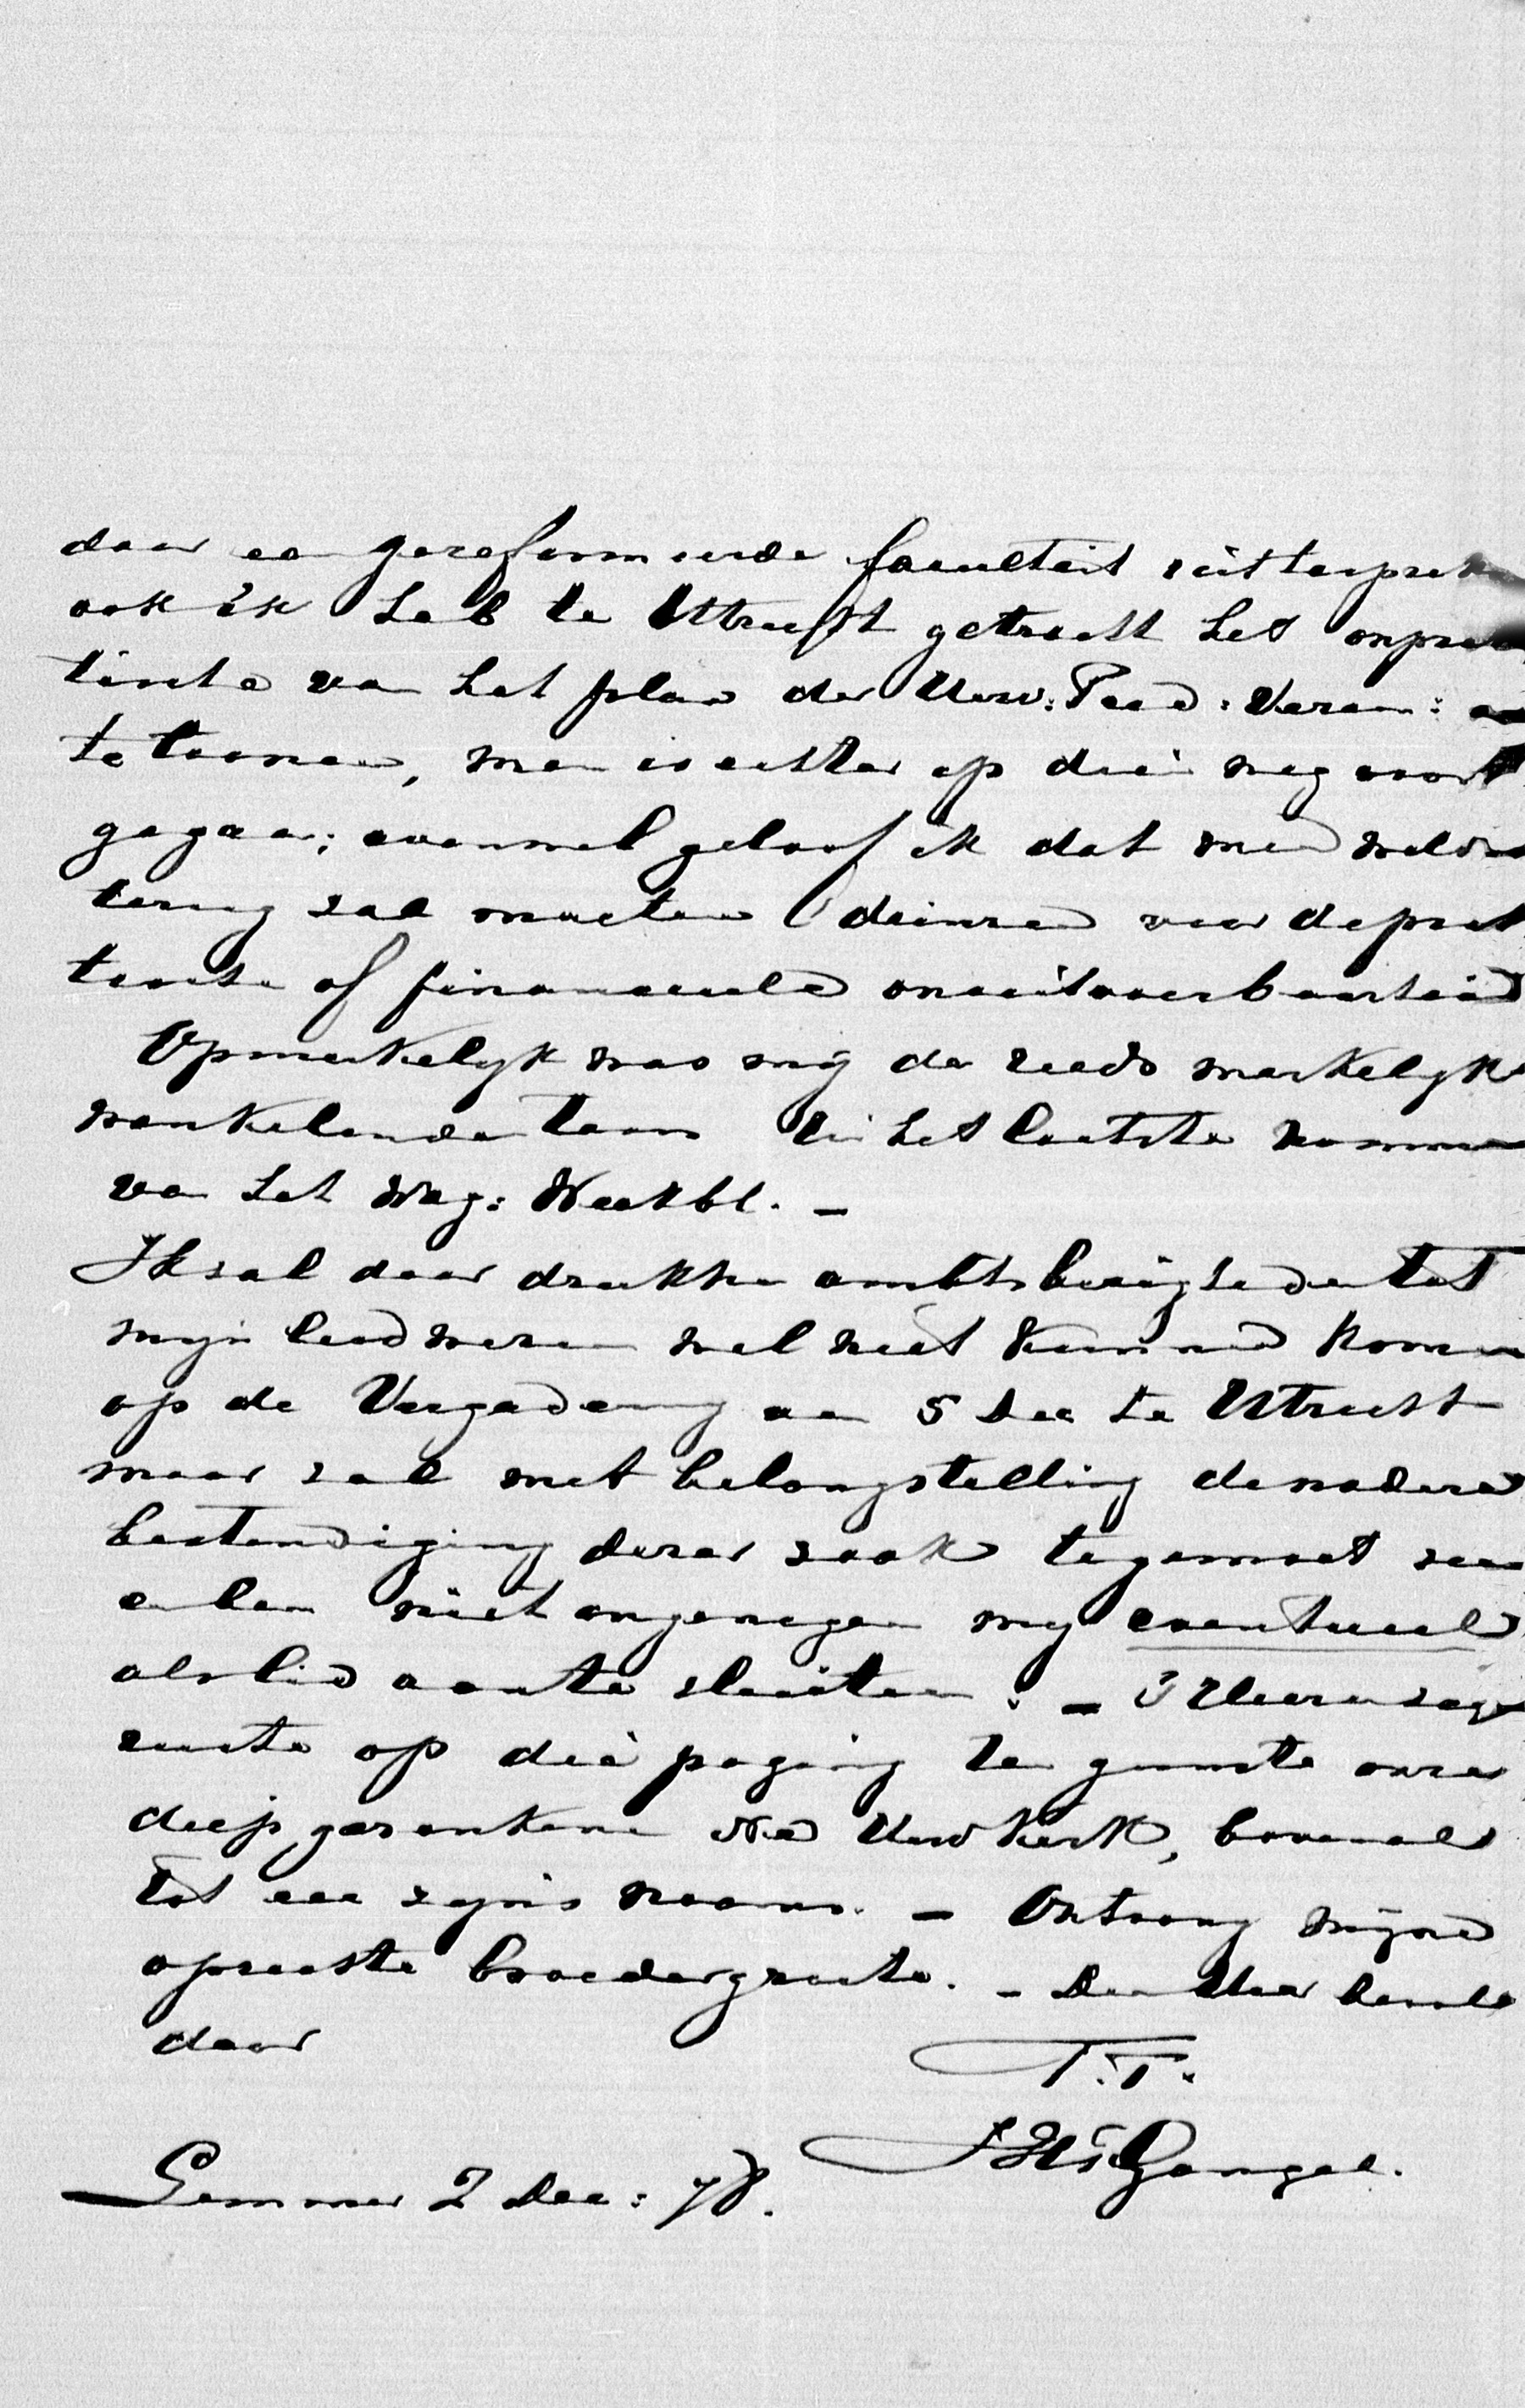 daar een gereformeerde faculteit uit te spreken
ook ik heb te Utrecht getracht het onprac
tische van het plan der Herv: Pred: Veren: aan
te toonen, men is echter op dien weg voort
gegaan; evenwel geloof ik dat men weldra
terug zal moeten deinzen voor de prac
tische of financieele onuitvoerbaarheid
Opmerkelijk was mij de reeds merkelijk
wankelende toon in het laatste nommer
van het Wag: Weekbl. —
Ik zal door drukke ambtsbezigheden tot
mijn leedwezen wel niet kunnen komen
op de Vergadering van 5 Dec te Utrecht
maar zal met belangstelling de nadere
bestendiging dezer zaak tegemoet zien
en ben niet ongenegen mij eventueel
als lid aan te sluiten. — 's Heeren zegen
ruste op die poging ten gunste onzer
diep gezonkene Ned Herv Kerk, bovenal
tot eer zijns naams. — Ontvang mijne
oprechte broedergroete. — Den Heer bevole
door
T.T.
Gangel.
Lemmer 2 Dec: 78.